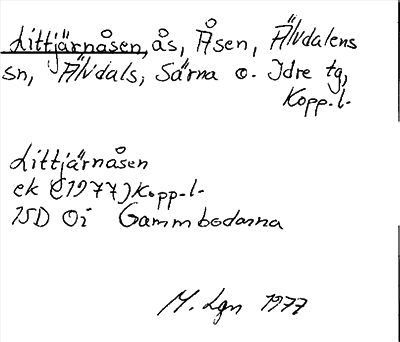 Littjärnåsen, ås, Åsen, Älvdalens
sn, Älvdals, Särna o. Idre tg,
Kopp.l.
Littjärnåsen
ek (1977) Kopp.l.
15D 0i Gammbodarna
M. Lgn 1977